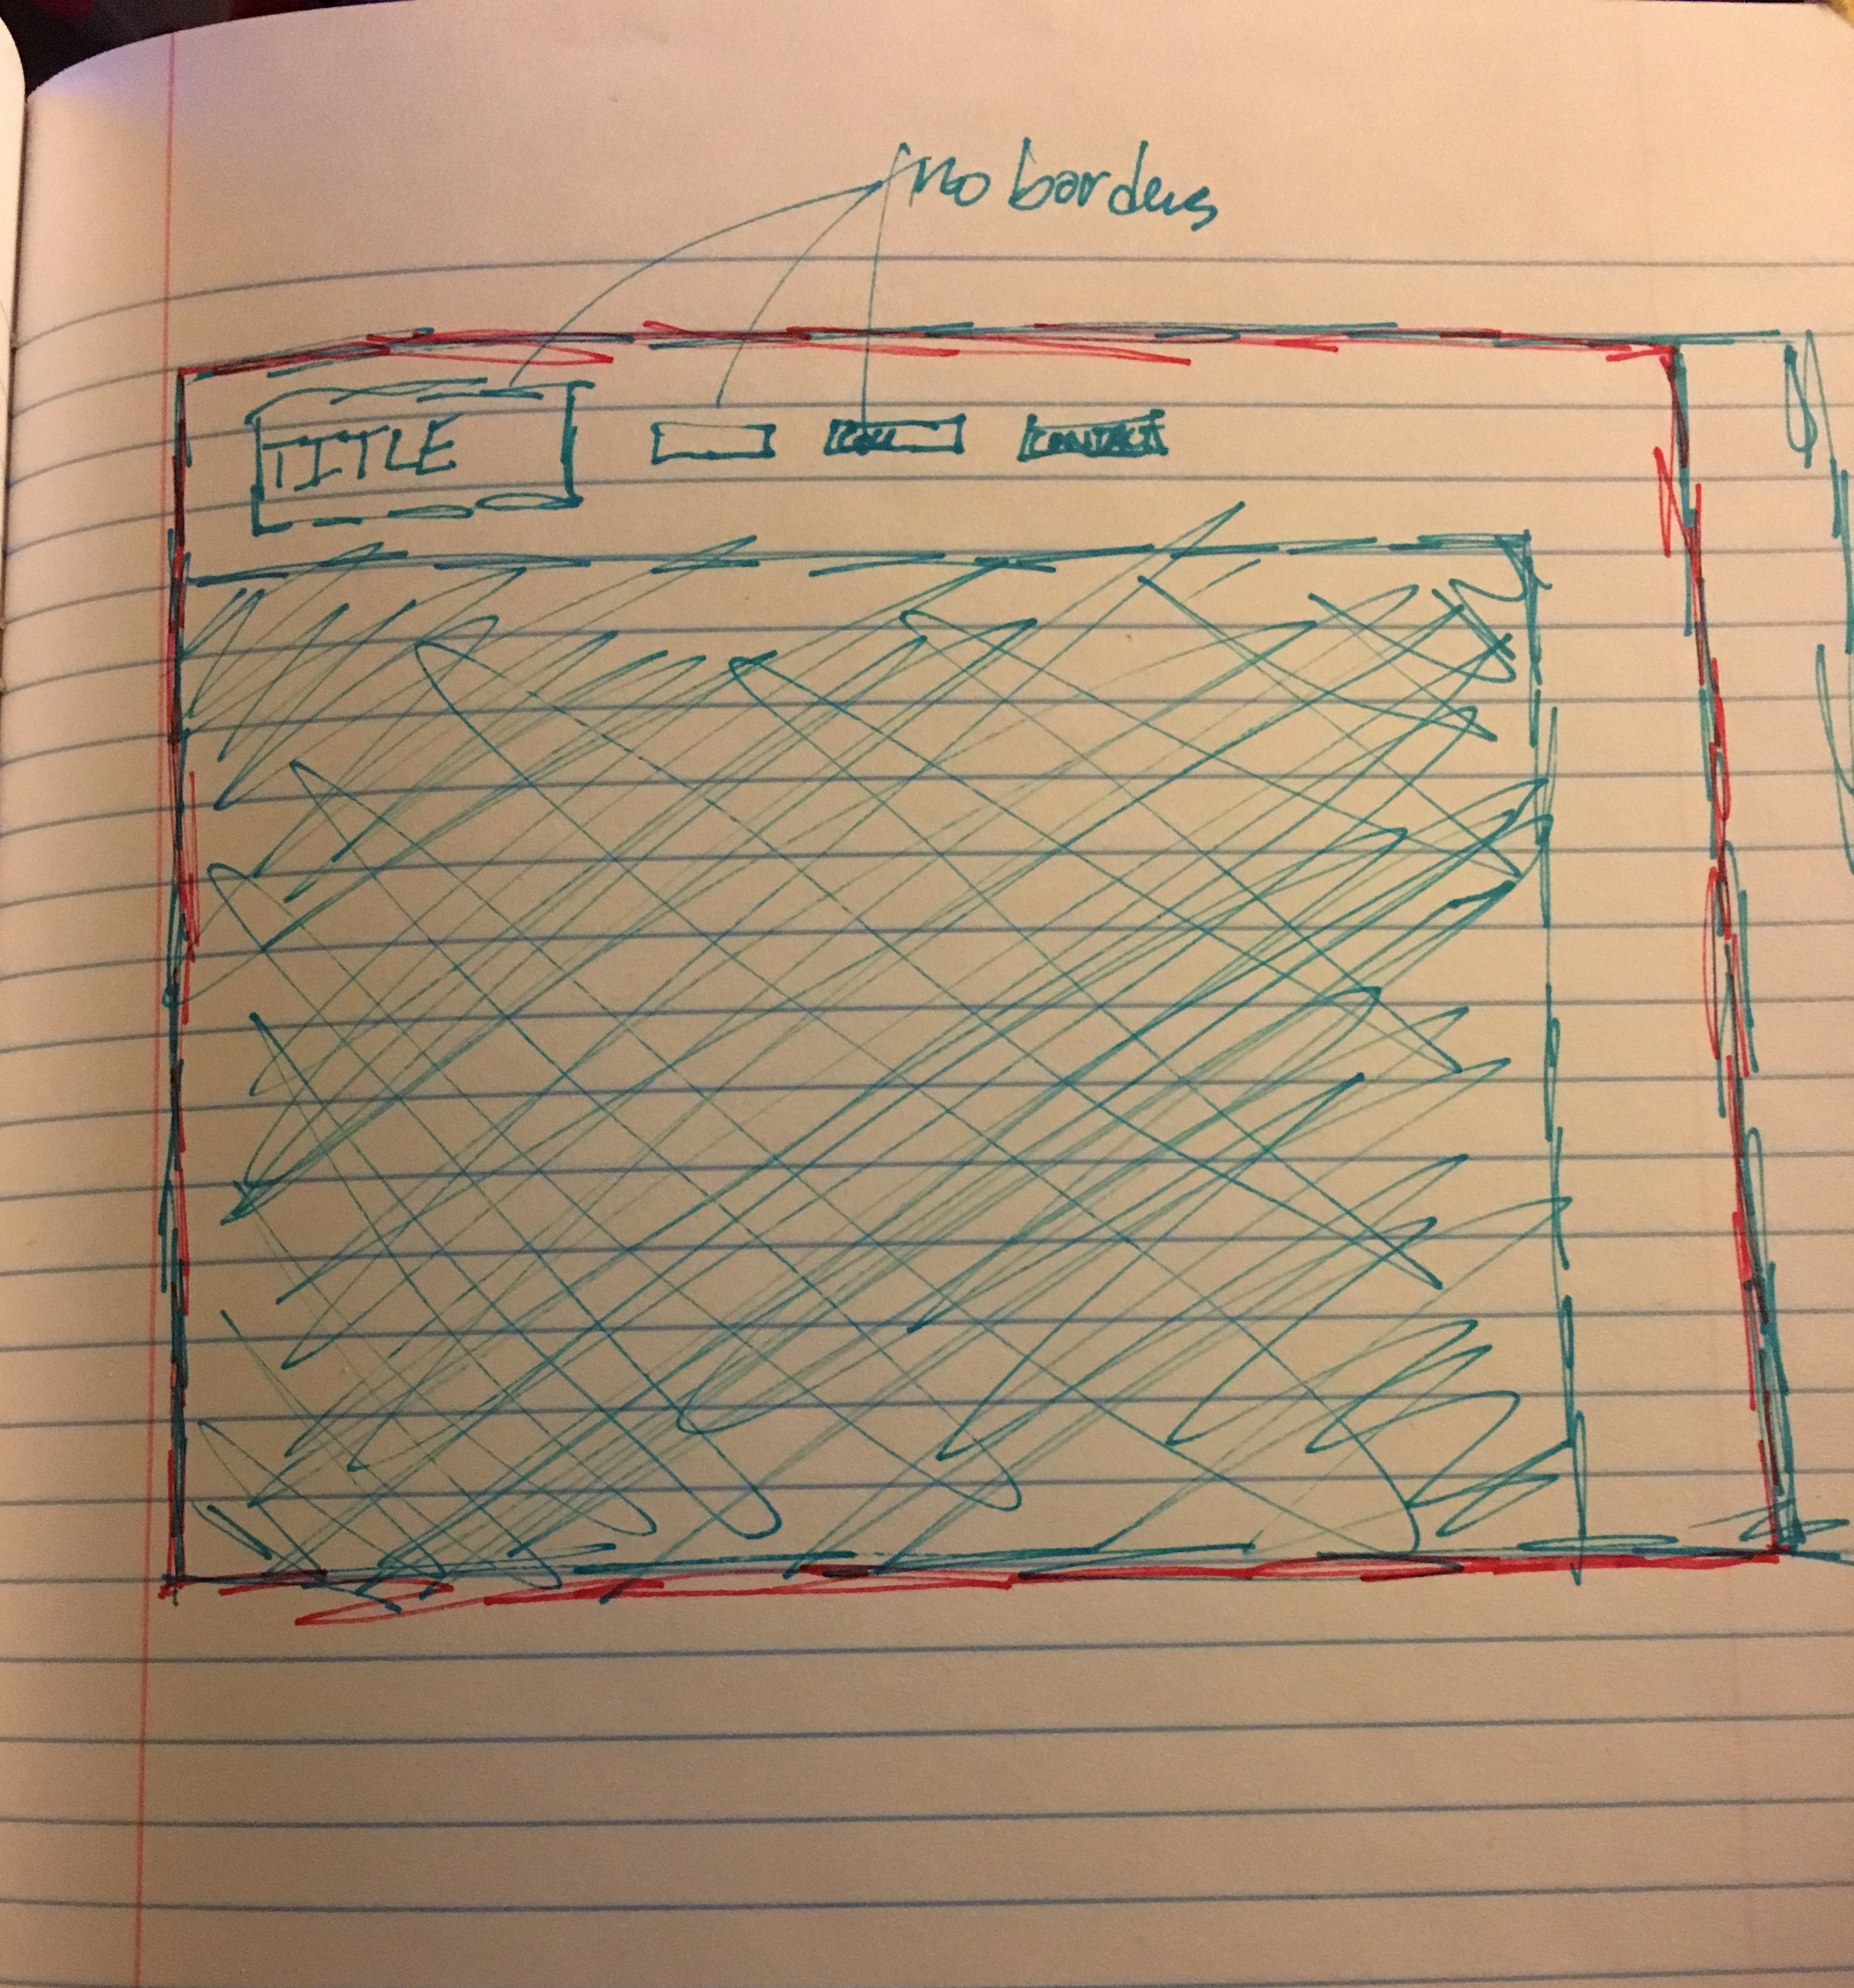 no borders
TITLE
CONTACT